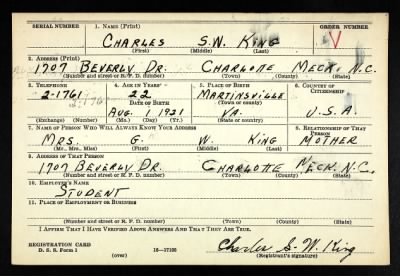 SERIAL NUMBER 1. NAME (Print) ORDER NUMBER
CHARLES S.W. KING V
(First) (Middle) (Last)
2. ADDRESS (Print)
1707 BEVERLY DR. CHARLOTTE MECK. N.C.
(Number and street or R. F. D. number) (Town) (County) (State)
3. TELEPHONE 4. AGE IN YEARS 5. PLACE OF BIRTH 6. COUNTRY OF CITIZENSHIP
2-1761 22 MARTINSVILLE
DATE OF BIRTH (Town or county)
AUG. 1 1921 VA. U.S.A.
(Exchange) (Number) (Mo.) (Day) (Yr.) (State or country)
7. NAME OF PERSON WHO WILL ALWAYS KNOW YOUR ADDRESS RELATIONSHIP OF THAT PERSON
MRS. G. W. KING MOTHER
(Mr., Mrs., Miss) (First) (Middle) (Last)
9. ADDRESS OF THAT PERSON
1707 BEVERLY DR. CHARLOTTE MECK. N.C.
(Number and street or R. F. D. number) (Town) (County) (State)
10. EMPLOYER'S NAME
STUDENT
11. PLACE OF EMPLOYMENT OR BUSINESS
(Number and street or R. F. D. number) (Town) (County) (State)
I AFFIRM THAT I HAVE VERIFIED ABOVE ANSWERS AND THAT THEY ARE TRUE.
REGISTRATION CARD
D. S. S. Form 1 (over) 16—17105 Charles S. W. King
(Registrant's signature)